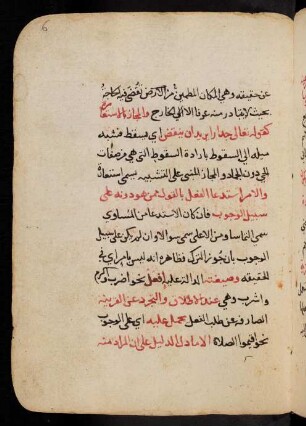 6
عن حقيقته وهي المكان المطمئن من الارض تقضى فيه الحاجة
بحيث لا يتبادر منه عرفا الا الى الخارج والمجاز بالاستعارة
كقوله تعالى جدارا يريد ان ينقض اى يسقط فشبه
ميله الى السقوط بارادة السقوط التى هي من صفات
الحي دون الجماد والمجاز المبنى على التشبيه يسمى استعارة
والامر استدعا الفعل بالقول ممن هو دونه على
سبيل الوجوب فان كان الاستدعا من المساوي
سمى التماسا ومن الاعلى سمى سوالا وان لم يكن على سبيل
الوجوب بان جوز الترك فظاهره انه ليس بامر اي في
الحقيقة وصيغته الدالة عليه افعل نحو اضرب واكرم
واشرب وهي عند الاطلاق والتجرد عن القرينة
الصارفة عن طلب الفعل تحمل عليه اي على الوجوب
نحو اقيموا الصلاة الا ما دل الدليل على ان المراد منه